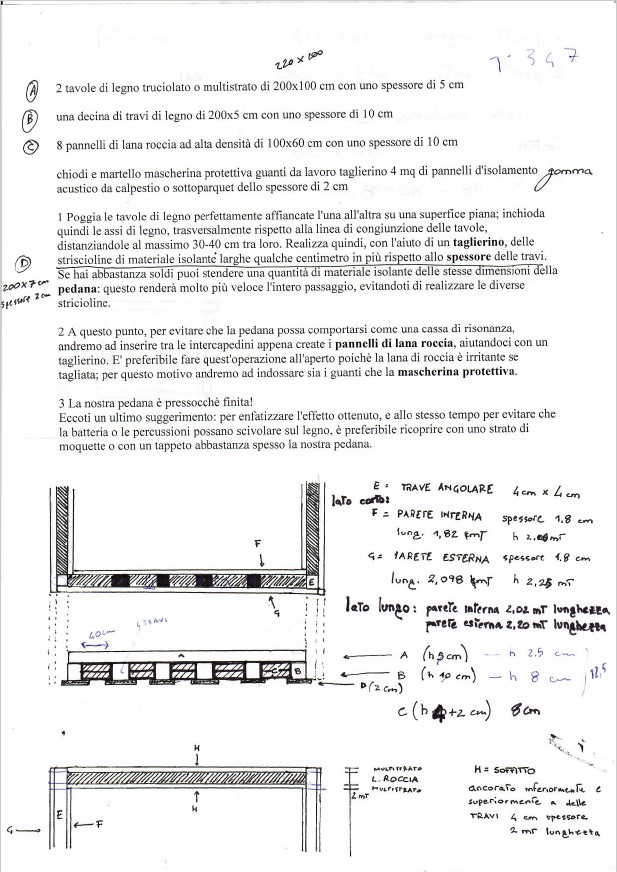 220 x 100
1. 347
A 2 tavole di legno truciolato o multistrato di 200x100 cm con uno spessore di 5 cm
B una decina di travi di legno di 200x5 cm con uno spessore di 10 cm
C 8 pannelli di lana roccia ad alta densità di 100x60 cm con uno spessore di 10 cm
chiodi e martello mascherina protettiva guanti da lavoro taglierino 4 mq di pannelli d'isolamento gomma
acustico da calpestio o sottoparquet dello spessore di 2 cm
1 Poggia le tavole di legno perfettamente affiancate l'una all'altra su una superfice piana; inchioda
quindi le assi di legno, trasversalmente rispetto alla linea di congiunzione delle tavole,
distanziandole al massimo 30-40 cm tra loro. Realizza quindi, con l'aiuto di un taglierino, delle
D striscioline di materiale isolante larghe qualche centimetro in più rispetto allo spessore delle travi.
200x7 cm
spessore 2 cm
Se hai abbastanza soldi puoi stendere una quantità di materiale isolante delle stesse dimensioni della
pedana: questo renderà molto più veloce l'intero passaggio, evitandoti di realizzare le diverse
stricioline.
2 A questo punto, per evitare che la pedana possa comportarsi come una cassa di risonanza,
andremo ad inserire tra le intercapedini appena create i pannelli di lana roccia, aiutandoci con un
taglierino. E' preferibile fare quest'operazione all'aperto poichè la lana di roccia è irritante se
tagliata; per questo motivo andremo ad indossare sia i guanti che la mascherina protettiva.
3 La nostra pedana è pressocchè finita!
Eccoti un ultimo suggerimento: per enfatizzare l'effetto ottenuto, e allo stesso tempo per evitare che
la batteria o le percussioni possano scivolare sul legno, è preferibile ricoprire con uno strato di
moquette o con un tappeto abbastanza spesso la nostra pedana.
E = TRAVE ANGOLARE 4 cm x 4 cm
lato corto:
F = PARETE INTERNA spessore 1,8 cm
lung. 1,82 mt h 2,00 mT
G = PARETE ESTERNA spessore 1.8 cm
lung. 2,098 mT h 2,25 mT
lato lungo: parete interna 2,02 mT lunghezza
parete esterna 2,20 mT lunghezza
F
E
G
40 cm
5 TRAVI
A
C
B
A (h 5 cm) — h 2.5 cm
B (h 10 cm) — h 8 cm
D (2 cm)
C (h +2 cm) 8 cm
H
H
E
F
G
MULTISTRATO
L. ROCCIA
MULTISTRATO
2 mT
H = SOFFITTO
ancorato inferiormente e
superiormente a delle
TRAVI 4 cm spessore
2 mT lunghezza